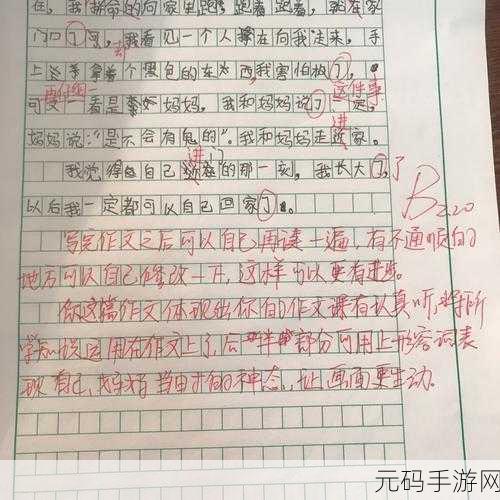 在，我拼命的向家里跑跑着跑着，就在家
门口了呢，我看见一个人在向我走来，手
上拿着个黑色的东西，我害怕极了，
可是一看是妈妈，我和妈妈说了
这件事
妈妈说："是不会有鬼的"。我和妈妈走进家。
我觉得自己进的那一刻，我长大了，
以后我一定都可以自己回家了。
B
写完作文之后可以自己再读一遍，有不通顺的
地方可以自己修改一下，这样可以更有进步。
你这篇作文体现出你的作文课有认真听，将所
学知识运用在作文上了，后半部分可用上形容词表
现自己，妈妈当时的神态，让画面更生动。
元码手游网